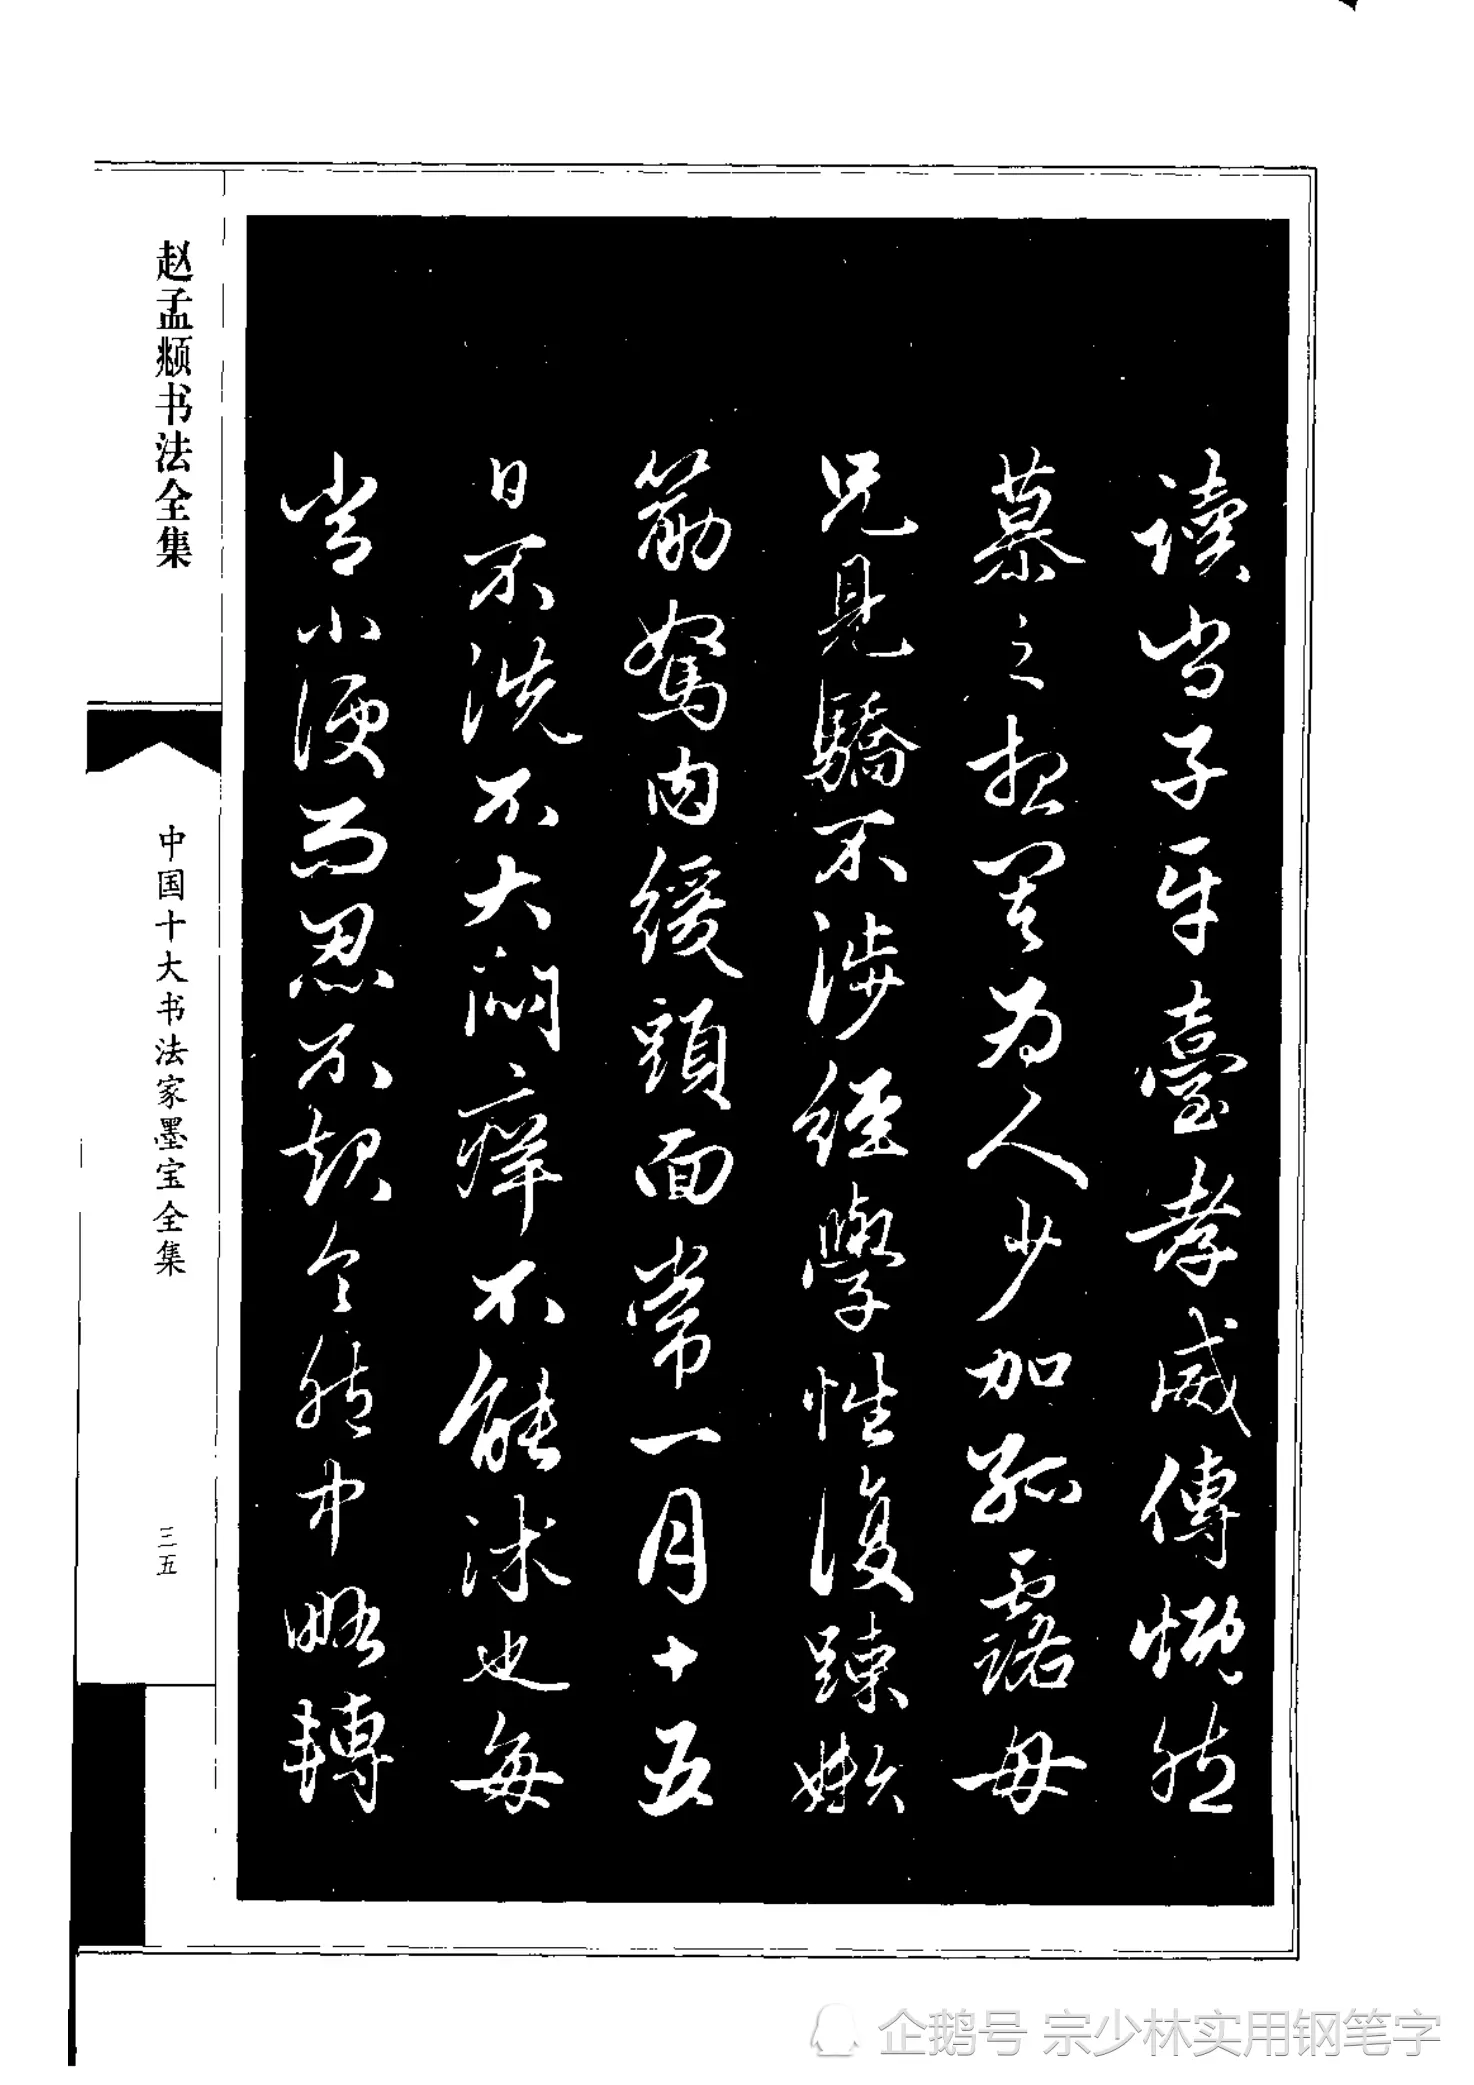 讀尚子平臺孝威傳慨然
慕之想其為人少加孤露母
兄見驕不涉經學性復踈嬾
筋駑肉緩頭面常一月十五
日不洗不大悶痒不能沐也每
常小便而忍不起令胞中略轉
赵孟𫖯书法全集
中国十大书法家墨宝全集
三五
企鹅号 宗少林实用钢笔字